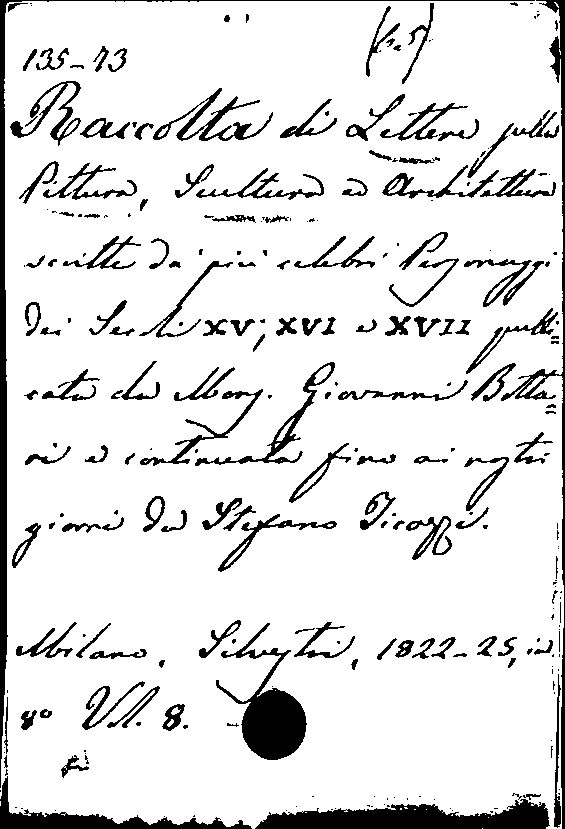 135-73
Raccolta di Lettere sulla
Pittura, Scultura ed Architettura
scritte da' più celebri Personaggi
dei Secoli XV, XVI e XVII pubbli=
cata da Mons. Giovanni Botta=
ri e continuata fino ai nostri
giorni da Stefano Ticozzi.
Milano, Silvestri, 1822-25, in
8º Vol. 8.